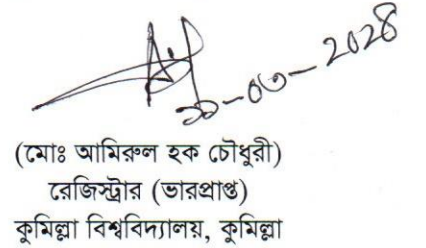 (মোঃ আমিরুল হক চৌধুরী)
রেজিস্ট্রার (ভারপ্রাপ্ত)
কুমিল্লা বিশ্ববিদ্যালয়, কুমিল্লা